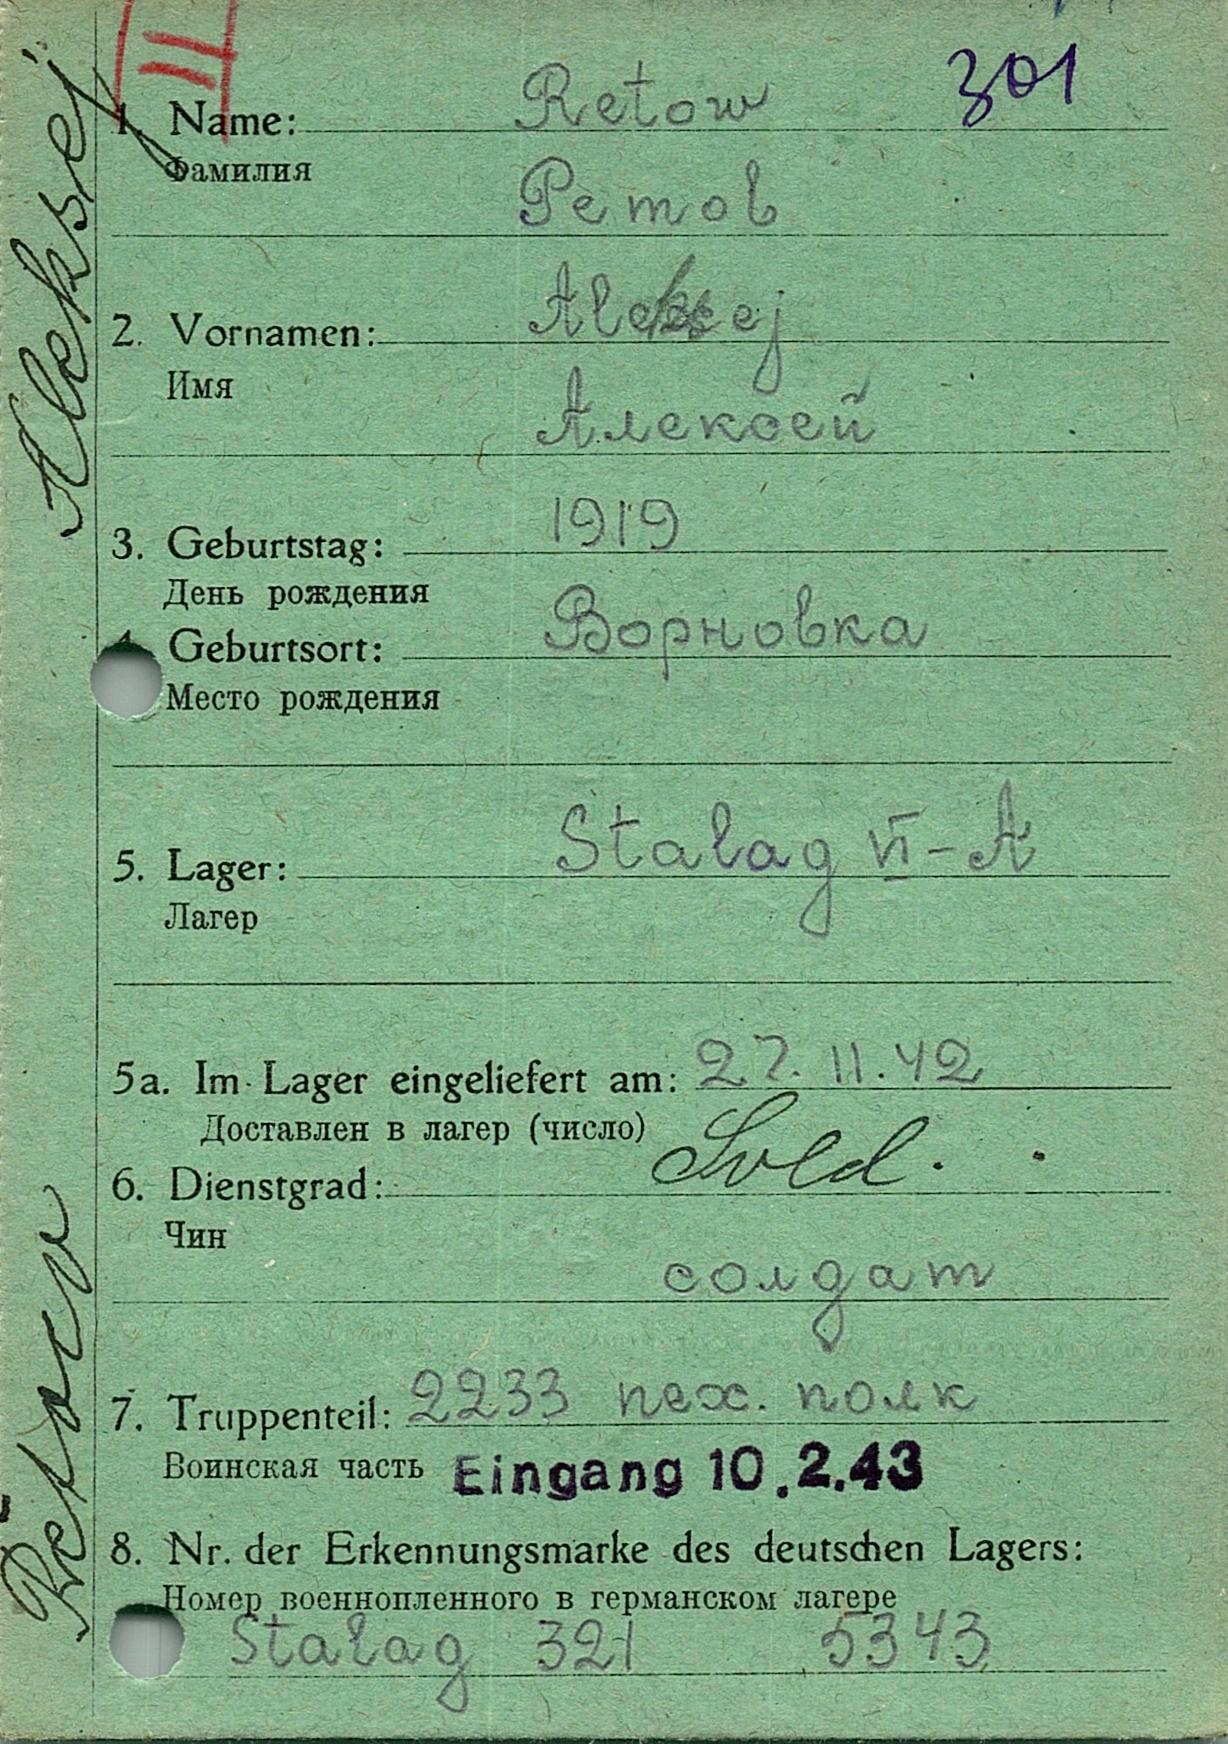 II
301
1. Name: Retow
Фамилия
Ретов
2. Vornamen: Aleksej
Имя
Алексей
3. Geburtstag: 1919
День рождения
4. Geburtsort: Ворновка
Место рождения
5. Lager: Stalag VI-A
Лагер
5a. Im Lager eingeliefert am: 27.11.42
Доставлен в лагер (число)
6. Dienstgrad: Sold.
Чин
солдат
7. Truppenteil: 2233 пех. полк
Воинская часть Eingang 10.2.43
8. Nr. der Erkennungsmarke des deutschen Lagers:
Номер военнопленного в германском лагере
Stalag 321 5343
Retow Aleksej